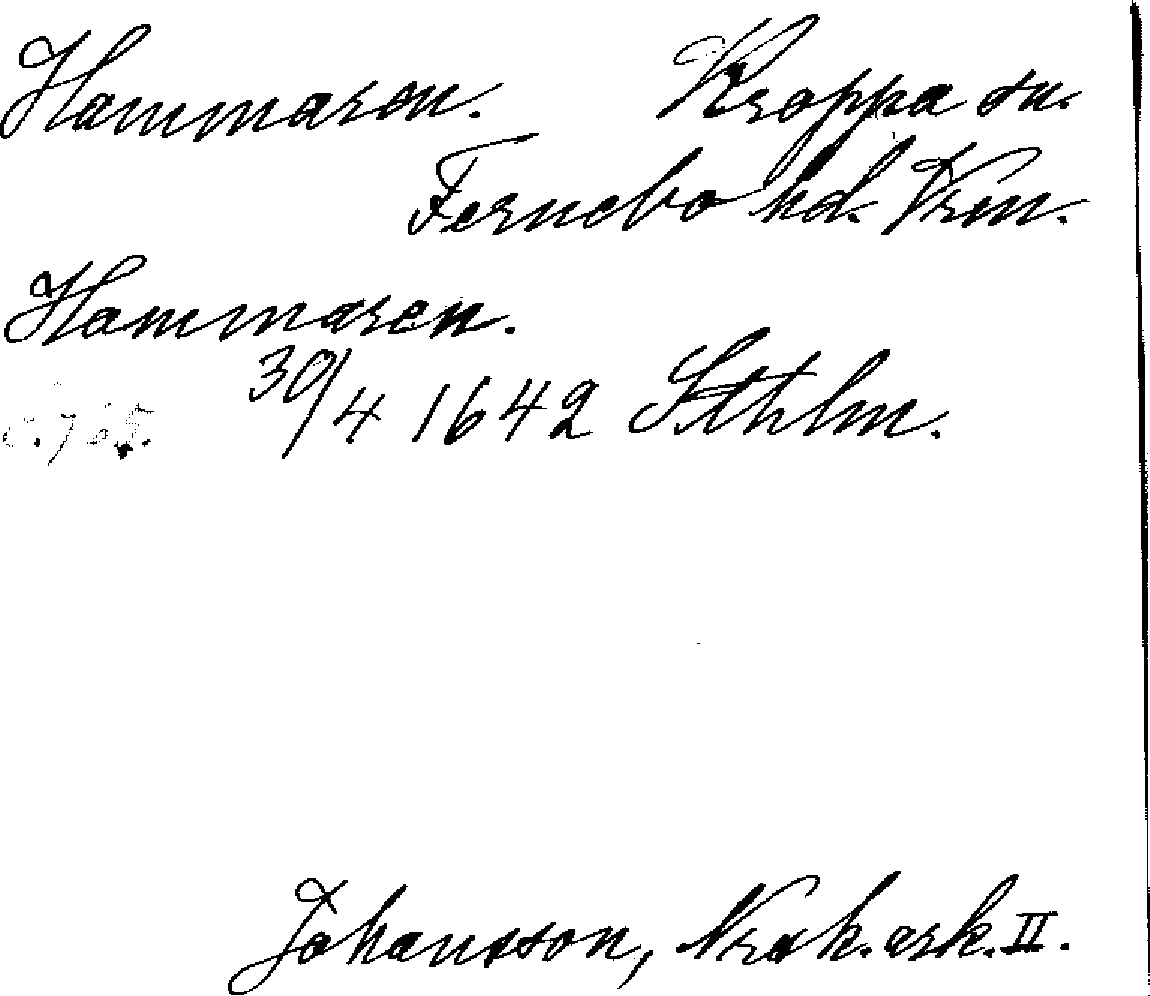 Hammaren. Kroppa sn.
Fernebo hd. Vrm.
Hammaren.
30/4 1642 Sthlm.
Johansson, ark. II.